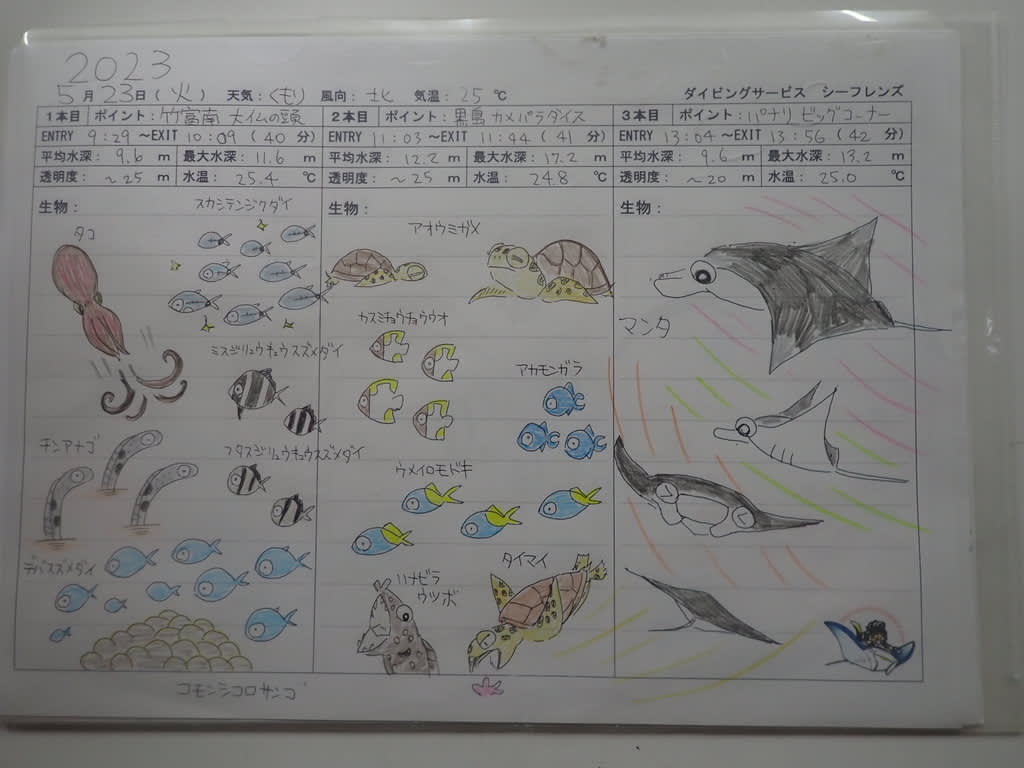 2023
5月23日(火) 天気：くもり 風向：北 気温：25℃ ダイビングサービス シーフレンズ
1本目 ポイント：竹富南 大仏の頭
ENTRY 9:29～EXIT 10:09 (40分)
平均水深：9.6m 最大水深：11.6m
透明度：～25m 水温：25.4℃
生物：
スカシテンジクダイ
タコ
ミスジリュウキュウスズメダイ
チンアナゴ
フタスジリュウキュウスズメダイ
デバスズメダイ
コモンシコロサンゴ
2本目 ポイント：黒島 カメパラダイス
ENTRY 11:03～EXIT 11:44 (41分)
平均水深：12.2m 最大水深：17.2m
透明度：～25m 水温：24.8℃
生物：
アオウミガメ
カスミチョウチョウウオ
アカモンガラ
ウメイロモドキ
タイマイ
ハナビラ
ウツボ
3本目 ポイント：パナリ ビッグコーナー
ENTRY 13:04～EXIT 13:56 (42分)
平均水深：9.6m 最大水深：13.2m
透明度：～20m 水温：25.0℃
生物：
マンタ